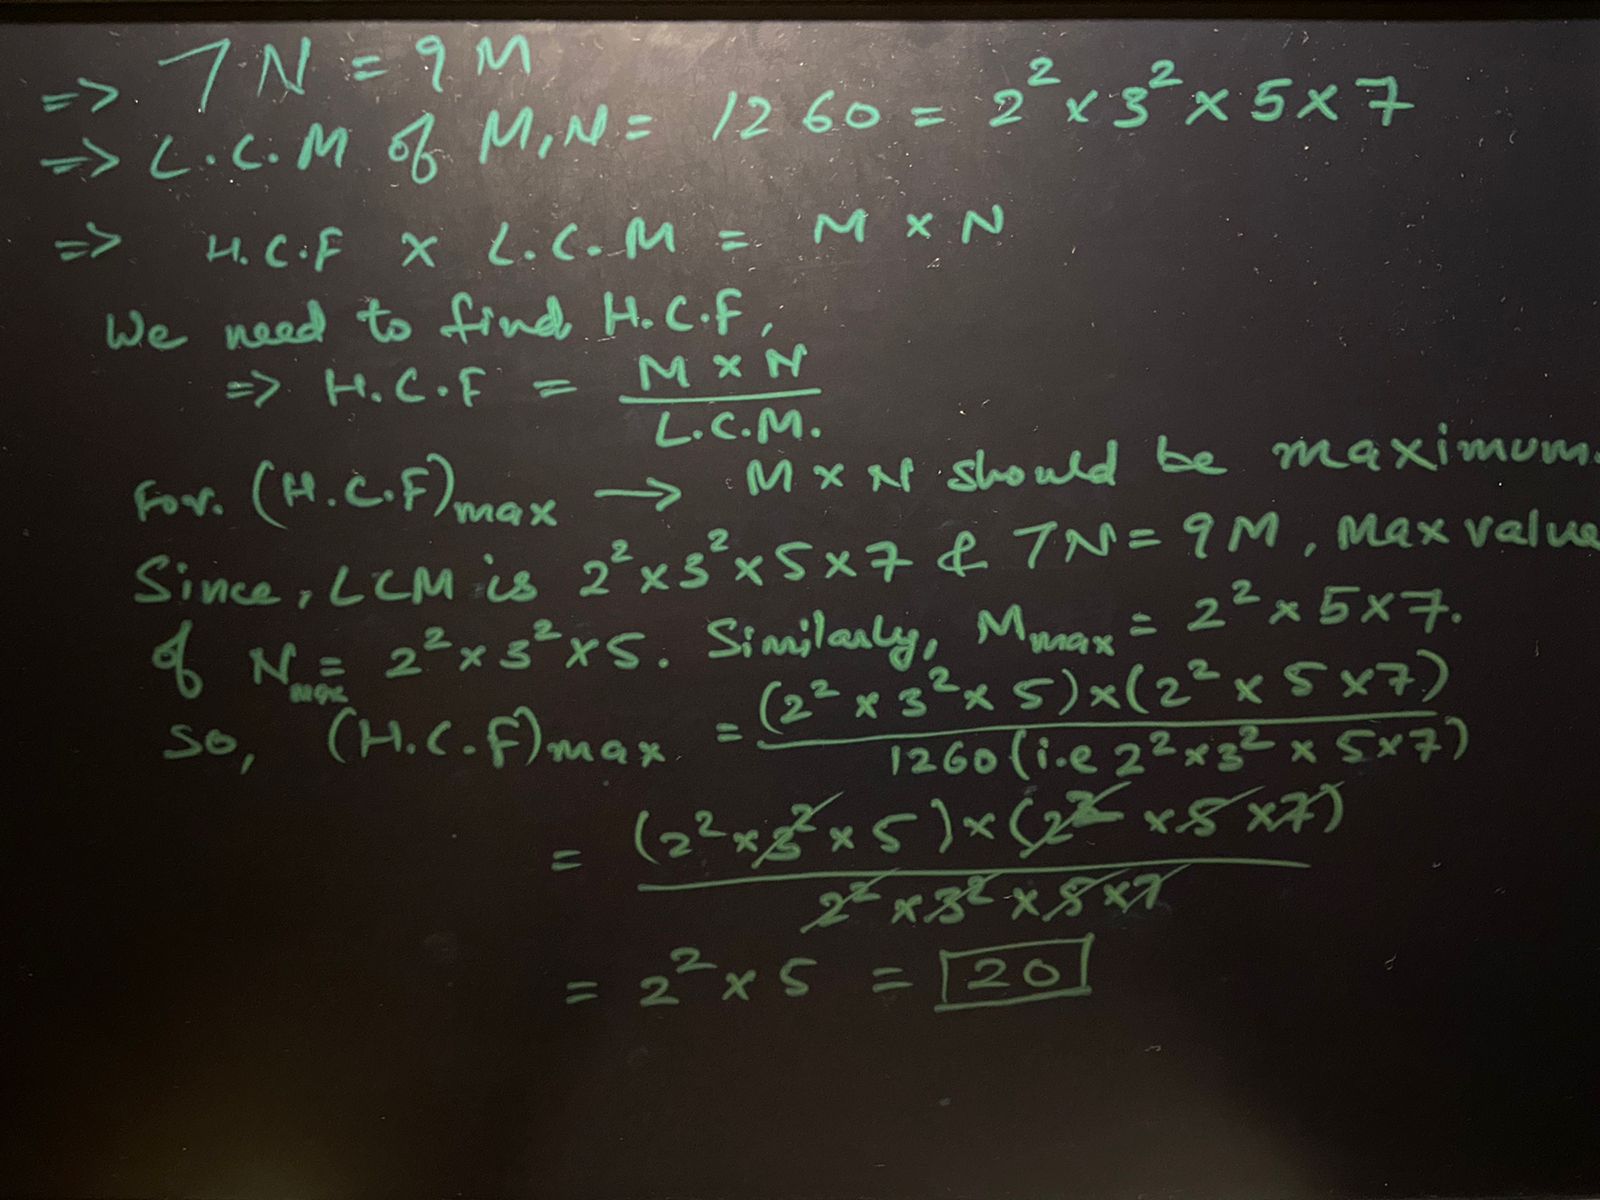 => 7N = 9M
=> L.C.M of M,N = 1260 = 2² × 3² × 5 × 7
=> H.C.F × L.C.M = M × N
We need to find H.C.F,
=> H.C.F = M × N
L.C.M.
For. (H.C.F)max → M × N should be maximum.
Since, LCM is 2² × 3² × 5 × 7 & 7N = 9M, Max value
of Nmax = 2² × 3² × 5. Similarly, Mmax = 2² × 5 × 7.
So, (H.C.F)max = (2² × 3² × 5) × (2² × 5 × 7)
1260 (i.e 2² × 3² × 5 × 7)
= (2² × 3² × 5) × (2² × 5 × 7)
2² × 3² × 5 × 7
= 2² × 5 = 20